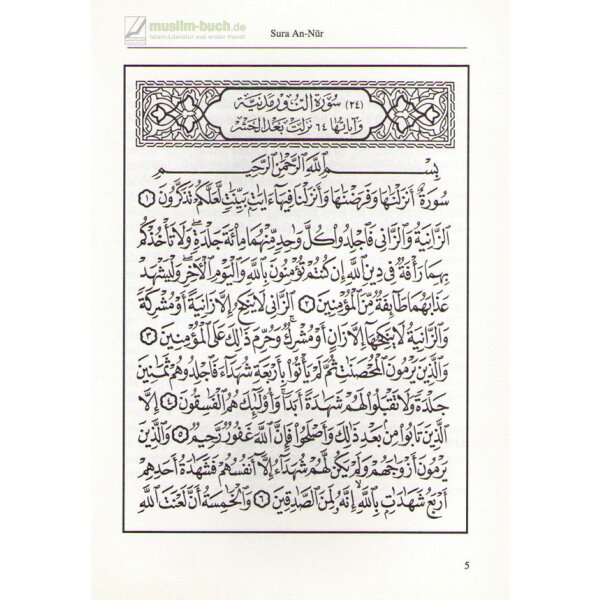 muslim-buch.de
Islam-Literatur aus erster Hand!
Sura An-Nūr
(٢٤) سُورَةُ النُّورِ مَدَنِيَّة
وَآيَاتُهَا ٦٤ نَزَلَتْ بَعْدَ الحَشْر
بِسْمِ ٱللَّهِ ٱلرَّحْمَٰنِ ٱلرَّحِيمِ
سُورَةٌ أَنزَلْنَٰهَا وَفَرَضْنَٰهَا وَأَنزَلْنَا فِيهَآ ءَايَٰتٍۭ بَيِّنَٰتٍ لَّعَلَّكُمْ تَذَكَّرُونَ ١
ٱلزَّانِيَةُ وَٱلزَّانِى فَٱجْلِدُوا۟ كُلَّ وَٰحِدٍ مِّنْهُمَا مِا۟ئَةَ جَلْدَةٍ ۖ وَلَا تَأْخُذْكُم
بِهِمَا رَأْفَةٌ فِى دِينِ ٱللَّهِ إِن كُنتُمْ تُؤْمِنُونَ بِٱللَّهِ وَٱلْيَوْمِ ٱلْءَاخِرِ ۖ وَلْيَشْهَدْ
عَذَابَهُمَا طَآئِفَةٌ مِّنَ ٱلْمُؤْمِنِينَ ٢ ٱلزَّانِى لَا يَنكِحُ إِلَّا زَانِيَةً أَوْ مُشْرِكَةً
وَٱلزَّانِيَةُ لَا يَنكِحُهَآ إِلَّا زَانٍ أَوْ مُشْرِكٌ ۚ وَحُرِّمَ ذَٰلِكَ عَلَى ٱلْمُؤْمِنِينَ ٣
وَٱلَّذِينَ يَرْمُونَ ٱلْمُحْصَنَٰتِ ثُمَّ لَمْ يَأْتُوا۟ بِأَرْبَعَةِ شُهَدَآءَ فَٱجْلِدُوهُمْ ثَمَٰنِينَ
جَلْدَةً وَلَا تَقْبَلُوا۟ لَهُمْ شَهَٰدَةً أَبَدًا ۚ وَأُو۟لَٰٓئِكَ هُمُ ٱلْفَٰسِقُونَ ٤ إِلَّا
ٱلَّذِينَ تَابُوا۟ مِنۢ بَعْدِ ذَٰلِكَ وَأَصْلَحُوا۟ فَإِنَّ ٱللَّهَ غَفُورٌ رَّحِيمٌ ٥ وَٱلَّذِينَ
يَرْمُونَ أَزْوَٰجَهُمْ وَلَمْ يَكُن لَّهُمْ شُهَدَآءُ إِلَّآ أَنفُسُهُمْ فَشَهَٰدَةُ أَحَدِهِمْ
أَرْبَعُ شَهَٰدَٰتٍۭ بِٱللَّهِ ۙ إِنَّهُۥ لَمِنَ ٱلصَّٰدِقِينَ ٦ وَٱلْخَٰمِسَةُ أَنَّ لَعْنَتَ ٱللَّهِ
5